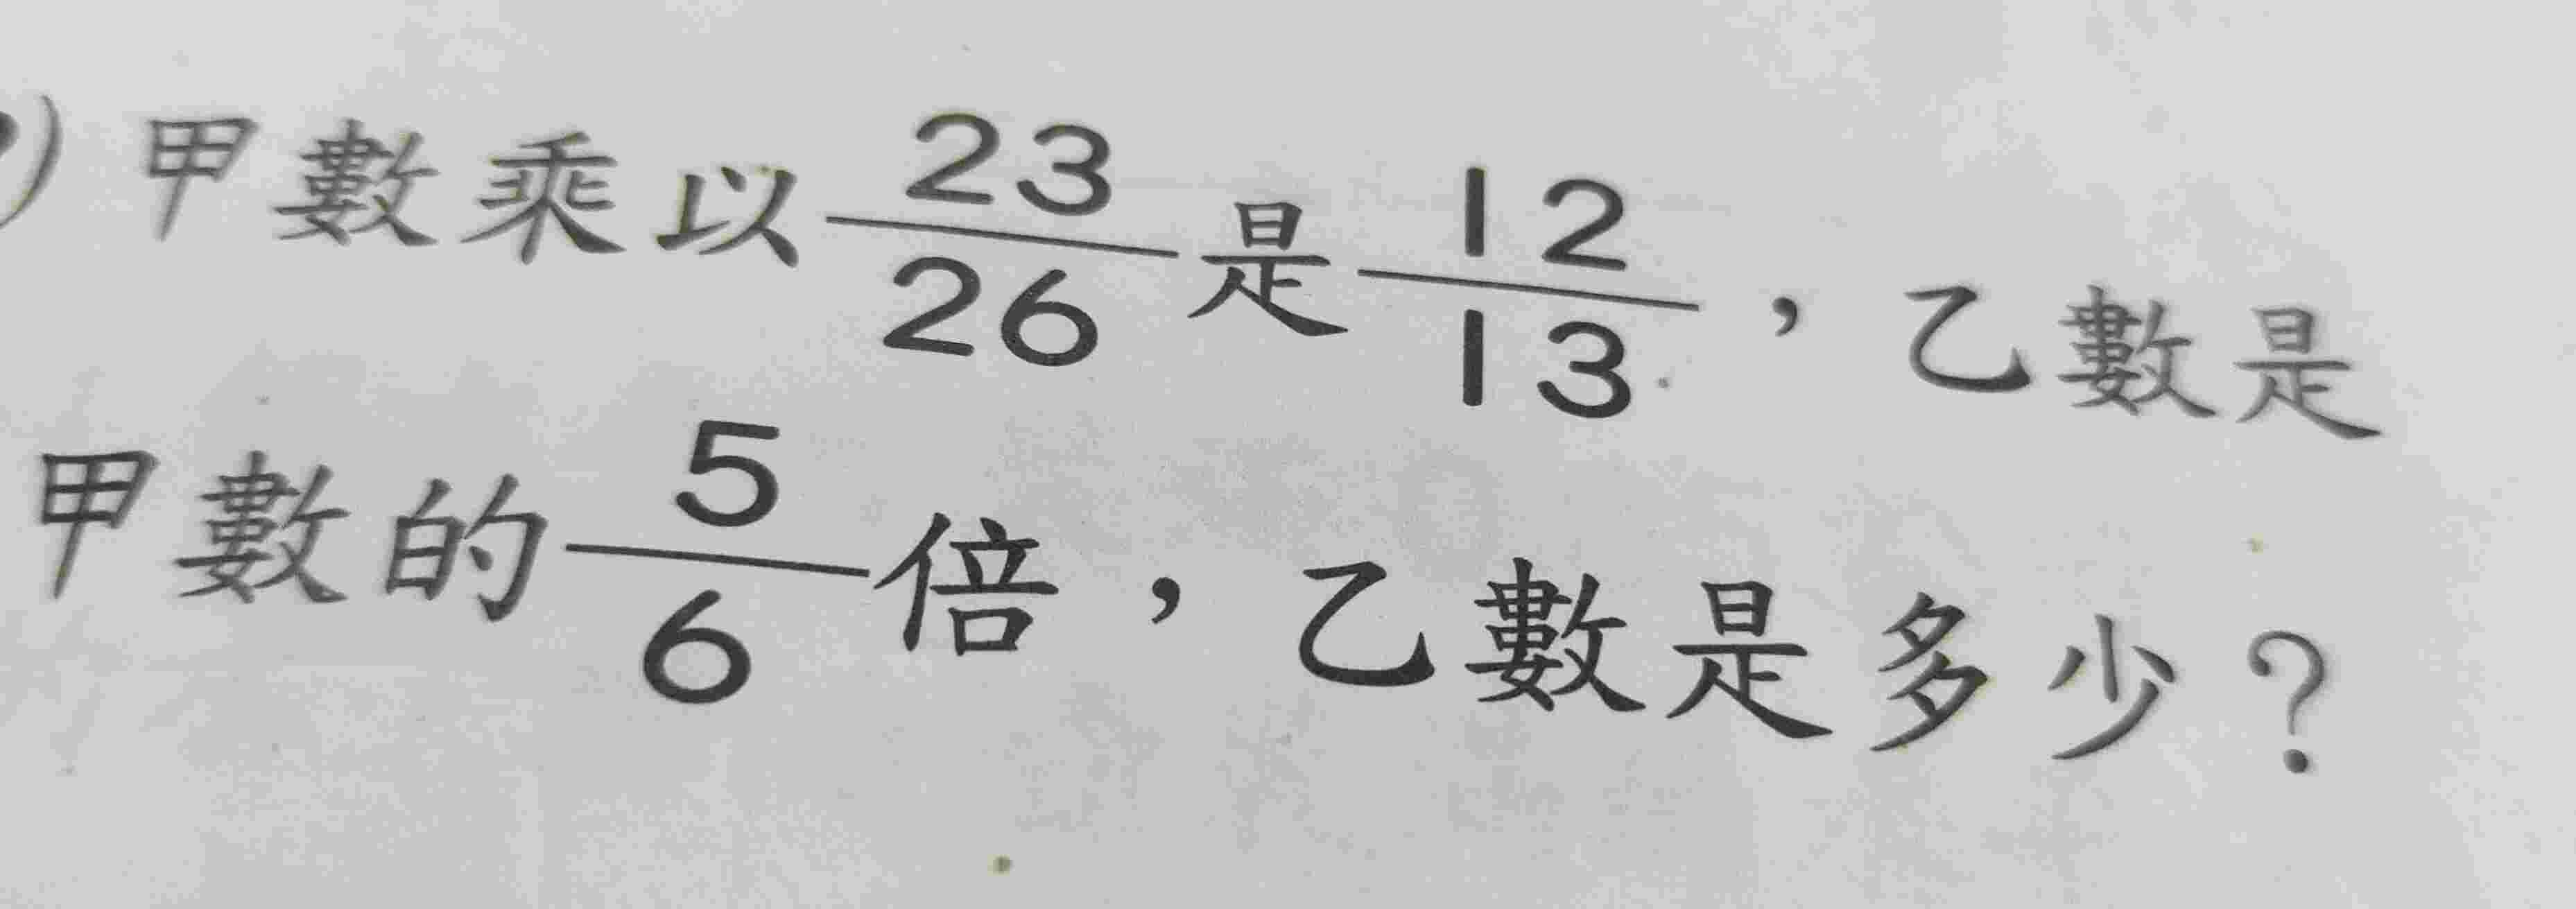 ) 甲數乘以 23/26 是 12/13，乙數是
甲數的 5/6 倍，乙數是多少？